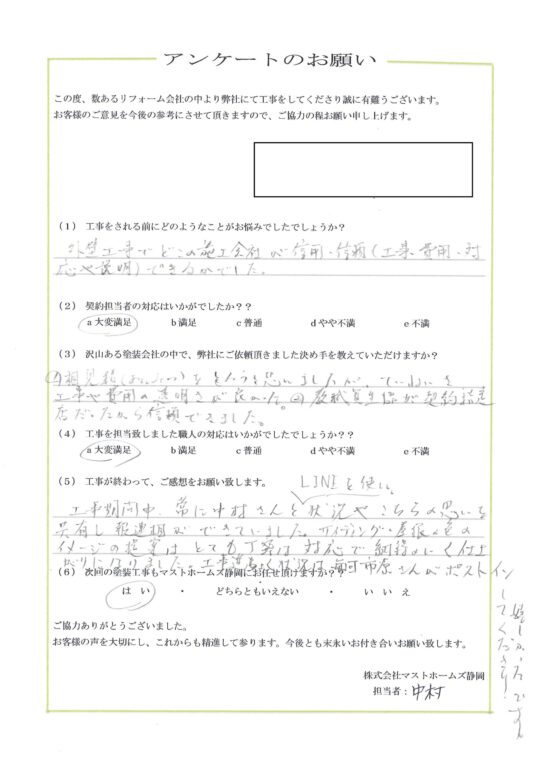 アンケートのお願い
この度、数あるリフォーム会社の中より弊社にて工事をしてくださり誠に有難うございます。
お客様のご意見を今後の参考にさせて頂きますので、ご協力の程お願い申し上げます。
(1) 工事をされる前にどのようなことがお悩みでしたでしょうか?
外壁工事でどこの施工会社が信用・信頼(工事・費用・対
応や説明)できるかでした。
(2) 契約担当者の対応はいかがでしたか??
a 大変満足 b 満足 c 普通 d やや不満 e 不満
(3) 沢山ある塗装会社の中で、弊社にご依頼頂きました決め手を教えていただけますか?
①相見積(あいみつ)をとろうと思いましたが、ていねいな
工事や費用の透明さが良かった。② 教職員生協が契約指定
店だったから信頼できました。
(4) 工事を担当致しました職人の対応はいかがでしたでしょうか??
a 大変満足 b 満足 c 普通 d やや不満 e 不満
(5) 工事が終わって、ご感想をお願い致します。
LINEを使い、
工事期間中、常に中村さんと状況やこちらの思いを
共有し報連相ができていました。サイディング・屋根の色の
イメージの提案はとても丁寧な対応で納得のいく仕上
がりになりました。工事状況は毎日市原さんがポストイン
してくださり、
(6) 次回の塗装工事もマストホームズ静岡にお任せ頂けますか??
はい ・ どちらともいえない ・ いいえ
ご協力ありがとうございました。
お客様の声を大切にし、これからも精進して参ります。今後とも末永いお付き合いお願い致します。
株式会社マストホームズ静岡
担当者:中村